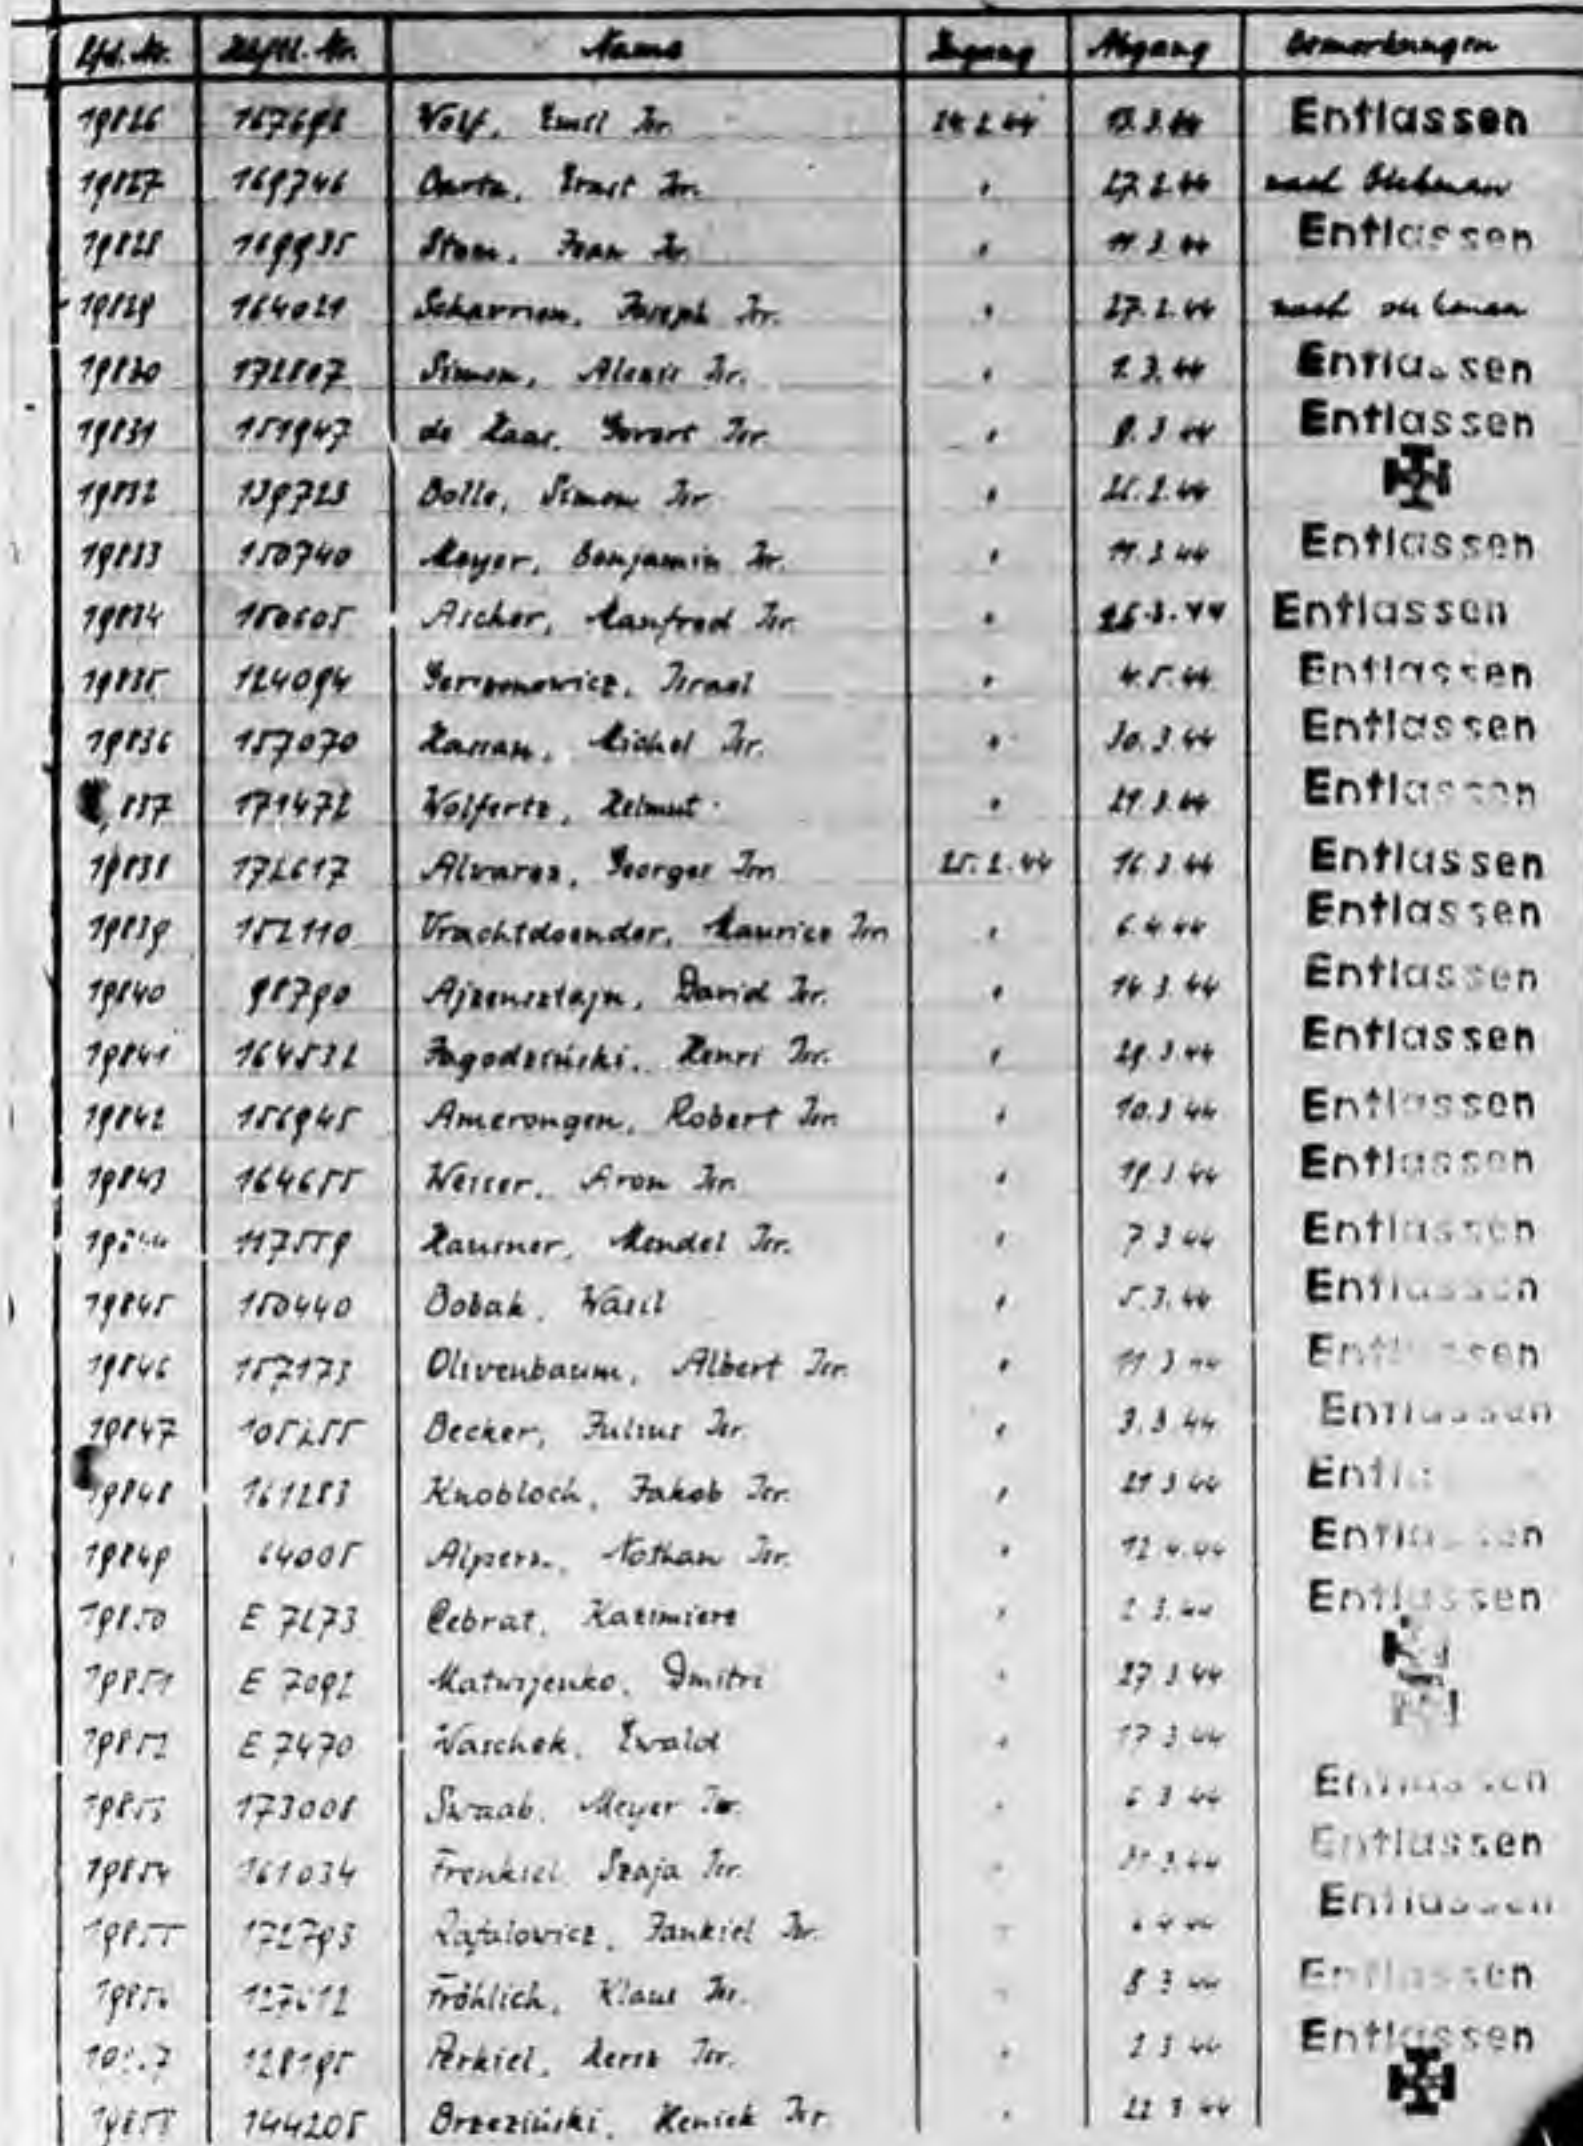 Lfd. Nr. Häftl. Nr. Name Zugang Abgang Bemerkungen
19826 167698 Wolf, Emil Isr. 24.2.44 13.3.44 Entlassen
19827 169746 Ernst Isr. " 27.2.44 nach Birkenau
19828 169935 Isr. " 11.3.44 Entlassen
19829 164021 Joseph Isr. " 27.2.44 nach Birkenau
19830 172807 Simon, Alexis Isr. " 2.3.44 Entlassen
19831 151947 de Haas, Isr. " 8.3.44 Entlassen
19832 139723 Bolle, Simon Isr. "
19833 150740 Meyer, Benjamin Isr. " 11.3.44 Entlassen
19834 150605 Ascher, Manfred Isr. " Entlassen
19835 124094 Gerszonowicz, Israel " 4.5.44 Entlassen
19836 157070 Hassan, Michel Isr. " 30.3.44 Entlassen
837 171472 Wolfertz, Helmut " 21.3.44 Entlassen
19838 172617 Alvarez, Georges Isr. 25.2.44 16.3.44 Entlassen
19839 152110 Vrachtdoender, Maurice Isr. " 6.4.44 Entlassen
19840 98790 Ajzensztajn, David Isr. " 14.3.44 Entlassen
19841 164532 Jagodziński, Henri Isr. " 29.3.44 Entlassen
19842 156945 Amerongen, Robert Isr. " 10.3.44 Entlassen
19843 164655 Weiser, Aron Isr. " 19.3.44 Entlassen
117559 Hausner, Mendel Isr. " 7.3.44 Entlassen
19845 150440 Bobak, Wasil " 5.3.44 Entlassen
19846 157173 Olivenbaum, Albert Isr. " 11.3.44 Entlassen
19847 105255 Becker, Julius Isr. " 3.3.44 Entlassen
19848 161283 Knobloch, Jakob Isr. " 21.3.44
19849 64005 Alpern, Nathan Isr. " 12.4.44 Entlassen
19850 E 7273 Cebrat, Kazimierz " 2.3.44 Entlassen
19851 E 7092 Matwijenko, Dmitri " 27.3.44
19852 E 7470 Waschek, Ewald " 17.3.44
19853 173008 Swaab, Meyer Isr. " 6.3.44 Entlassen
19854 161034 Frenkiel Szaja Isr. " Entlassen
19855 172793 Rafalowicz, Jankiel Isr. " Entlassen
Fröhlich, Klaus Isr. " 8.3.44 Entlassen
128195 Perkiel, Hersz Isr. " 2.3.44 Entlassen
19858 144205 Brzeziński, Heniek Isr. " 22.3.44